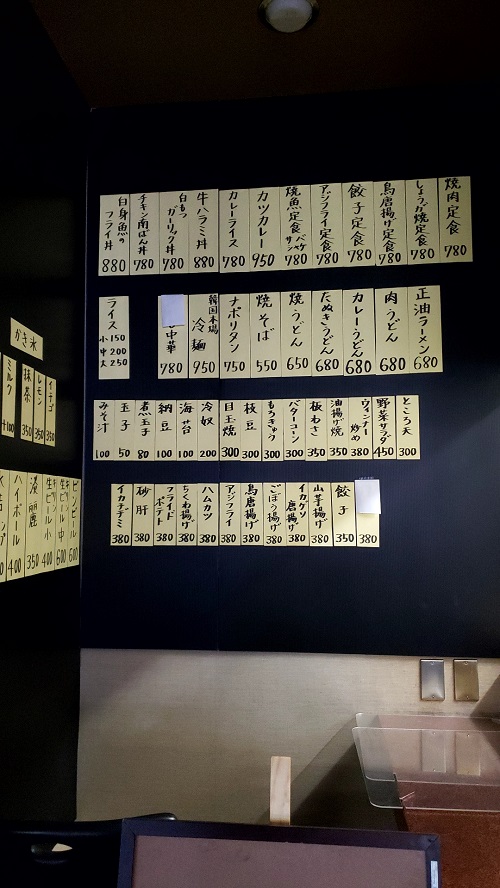 焼肉定食 780
しょうが焼定食 780
鳥唐揚げ定食 780
餃子定食 780
アジフライ定食 780
焼魚定食 サバ サケ 780
カツカレー 950
カレーライス 780
牛ハラミ丼 880
白もつガーリック丼 780
チキン南ばん丼 780
白身魚のフライ丼 880
正油ラーメン 680
肉うどん 680
カレーうどん 680
たぬきうどん 680
焼うどん 650
焼そば 550
ナポリタン 750
韓国本場 冷麺 950
中華 780
ライス 小150 中200 大250
ところ天 300
野菜サラダ 450
ウィンナー炒め 380
油揚げ焼 350
板わさ 350
バターコーン 300
もろきゅう 300
枝豆 300
目玉焼 300
冷奴 200
海苔 100
納豆 100
煮玉子 80
玉子 50
みそ汁 100
380
餃子 350
山芋揚げ 380
イカゲソ唐揚げ 380
ごぼう揚げ 380
鳥唐揚げ 380
アジフライ 380
ハムカツ 380
ちくわ揚げ 380
フライドポテト 380
砂肝 380
イカチヂミ 380
かき氷
イチゴ 350
レモン 350
抹茶 350
ミルク +100
ビンビール 600
生ビール中 600
生ビール小 400
350
ハイボール 400